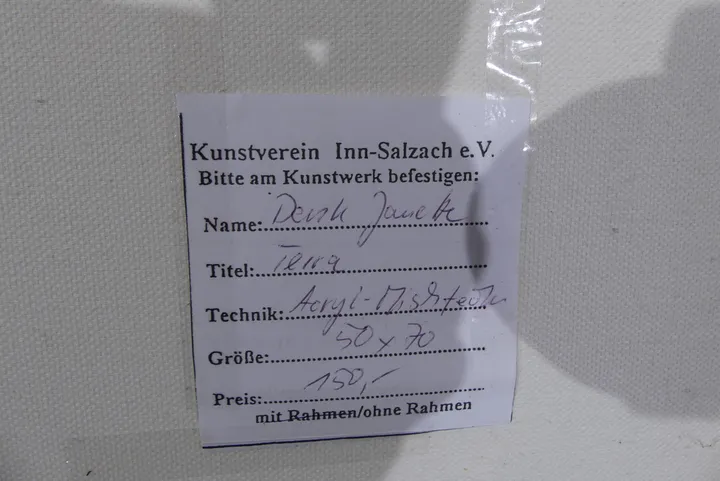 Kunstverein Inn-Salzach e.V.
Bitte am Kunstwerk befestigen:
Name: Janette
Titel: Terra
Technik: Acryl-Mischtechn
Größe: 50 x 70
Preis: 150,-
mit Rahmen/ohne Rahmen